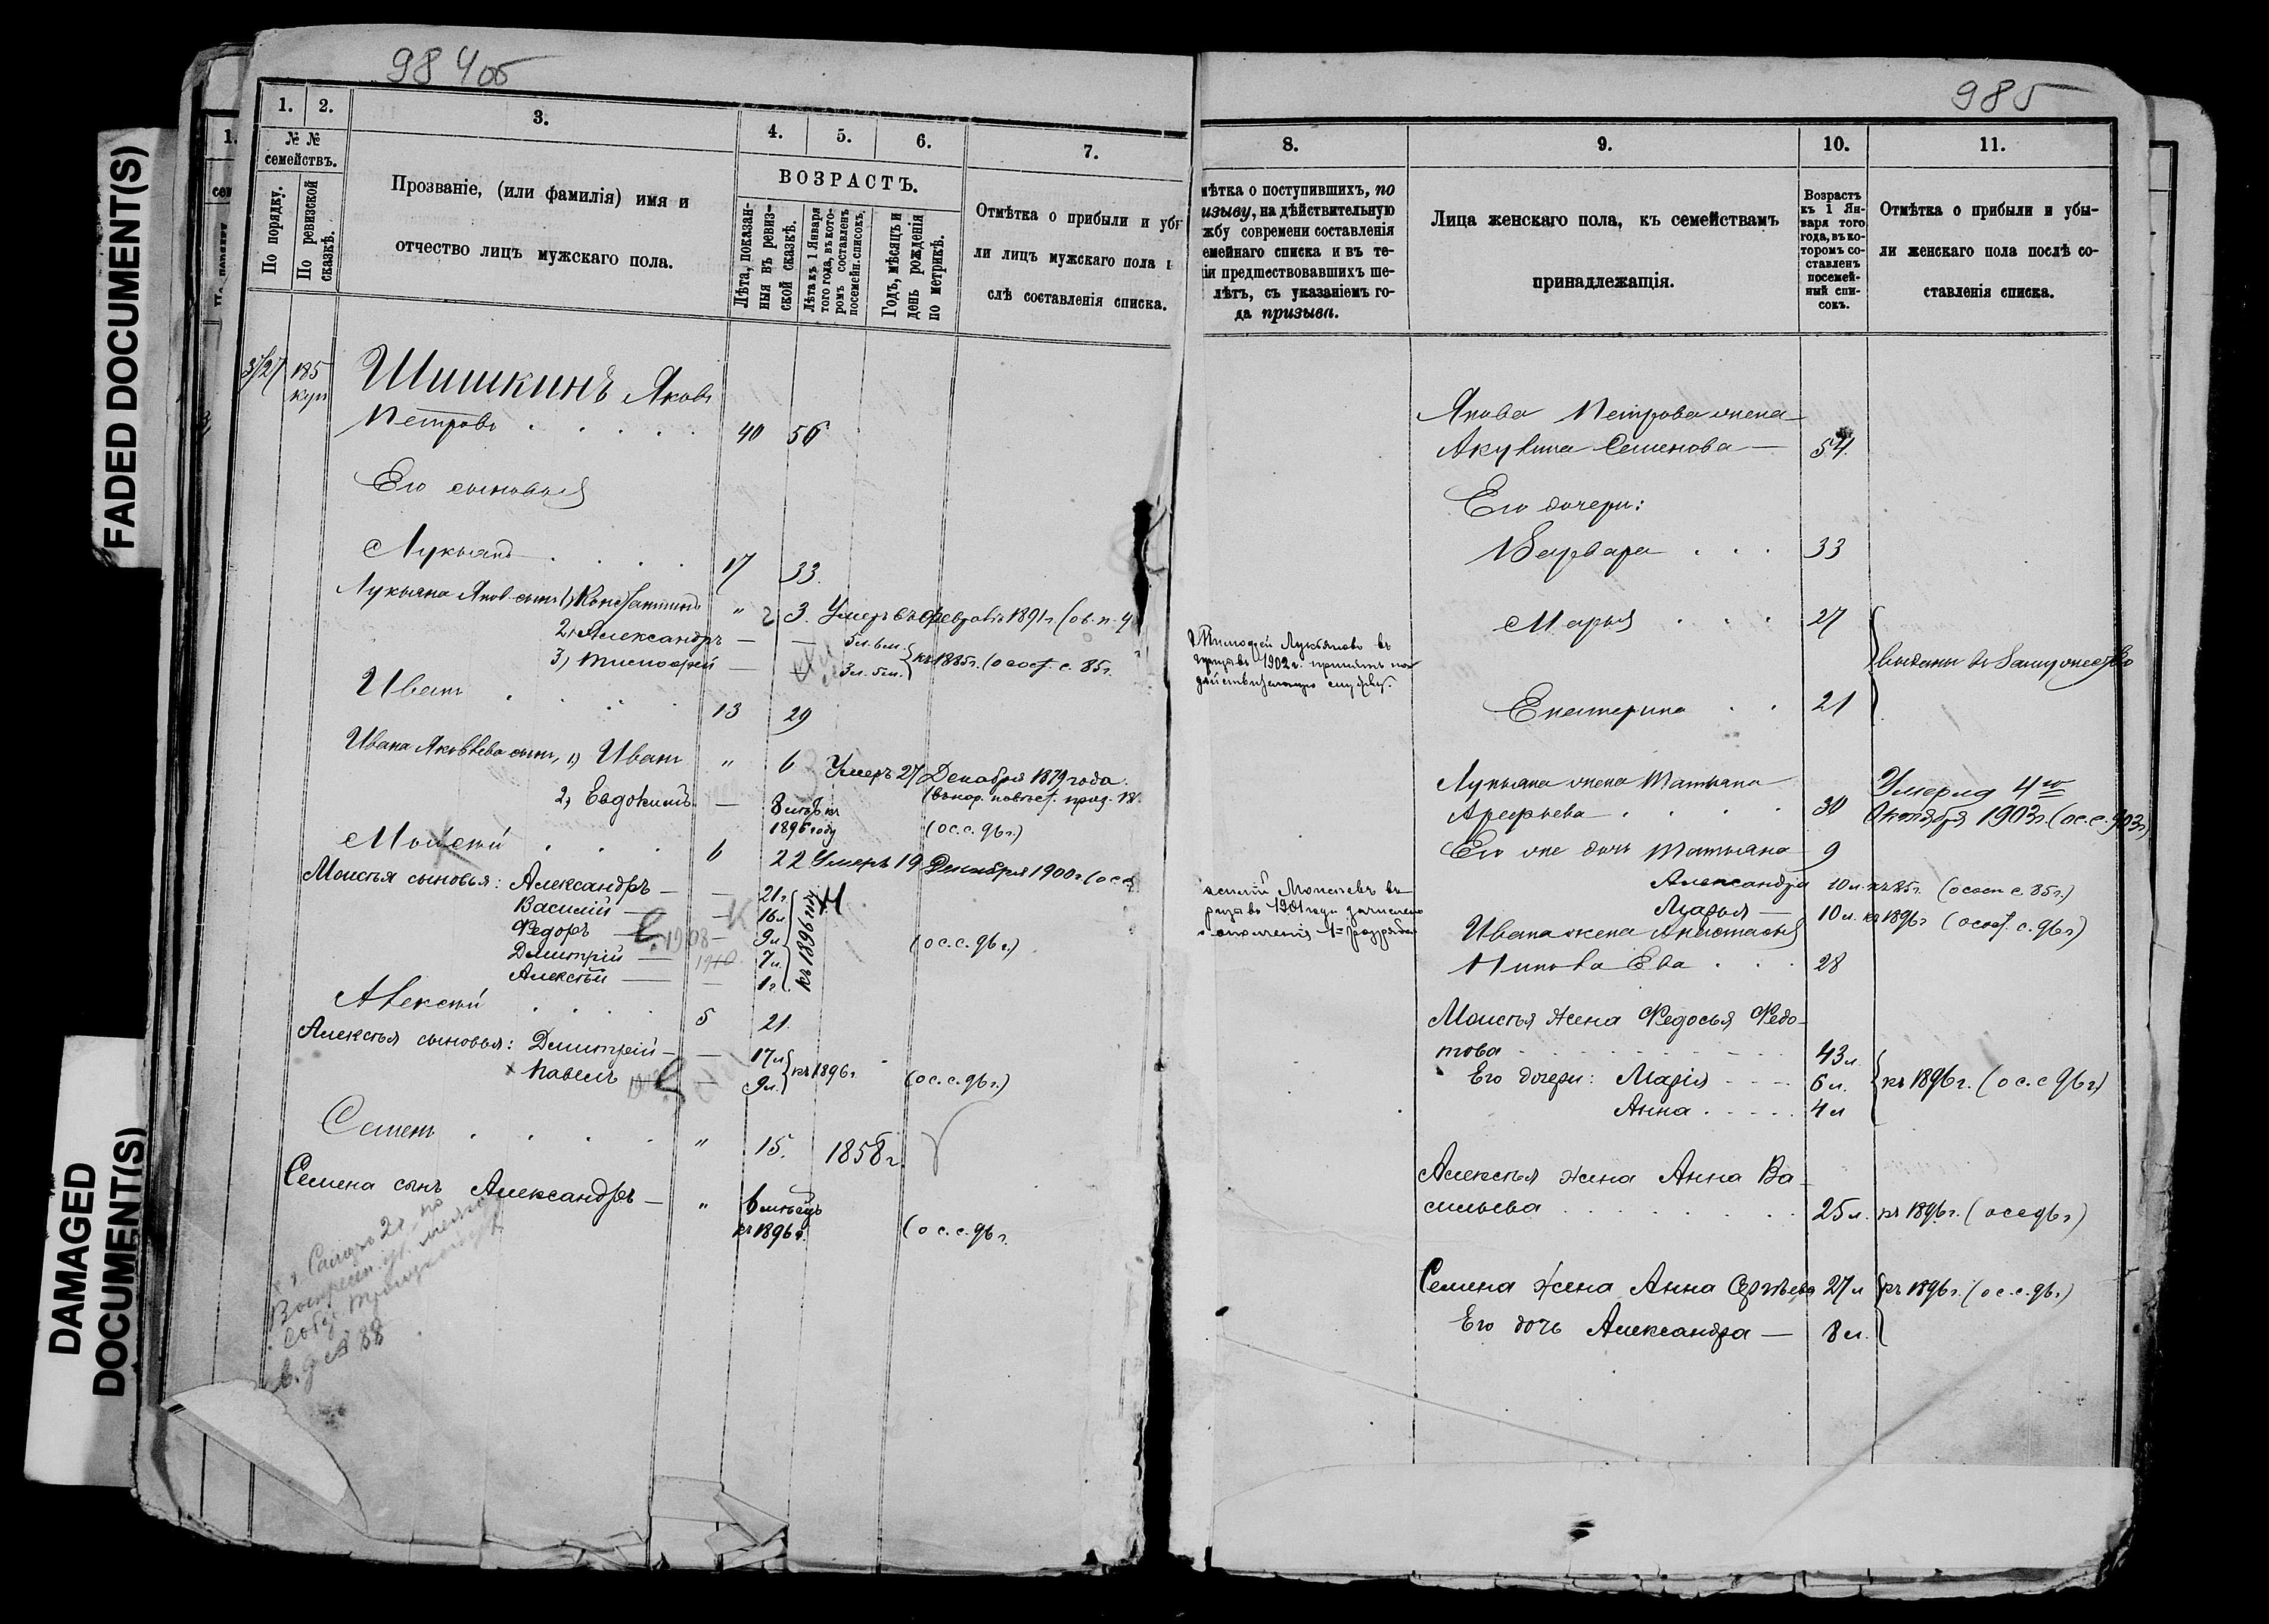 FADED DOCUMENT(S)
DAMAGED
DOCUMENT(S)
984об
1. 2. 3. 4. 5. 6. 7.
№ №
семействъ.
По порядку.
По ревизской
сказкѣ.
Прозваніе, (или фамилія) имя и
отчество лицъ мужскаго пола.
ВОЗРАСТЪ.
Лѣта, показан-
ныя въ ревиз-
ской сказкѣ.
Лѣта къ 1 Января
того года, въ кото-
ромъ составленъ
посемейн. списокъ.
Годъ, мѣсяцъ и
день рожденія
по метрикѣ.
Отмѣтка о прибыли и убы
ли лицъ мужскаго пола
слѣ составленія списка.
185 Шишкинъ Яковъ
куп
Петровъ 40 56
Его сыновья
Лукьянъ 17 33.
Лукьяна Яков. сынъ 1) Константинъ " 3. Умеръ въ февралѣ 1891 г.
2) Александръ — — 5 л. 6 м.
3) Тимофей — 3 л. 5 м. къ 1885 г. (о сост. с. 85 г.
Иванъ 13 29
Ивана Яковлева сынъ, 1) Иванъ " 6 Умеръ 27 Декабря 1879 года.
2) Евдокимъ — 8 лѣтъ къ
1896 году (о с. с. 96 г.)
Моисей 6 22 Умеръ 19 Декабря 1900 г. (о с с
Моисѣя сыновья: Александръ — — 21 г.
Василій — — 16 л.
Ѳедоръ — 1908 — 9 л. къ 1896 году (о с. с. 96 г.)
Дмитрій — 1910 7 л.
Алексѣй — — 1 г.
Алексѣй 5 21.
Алексѣя сыновья: Дмитрій — — 17 л.
Павелъ — 9 л. къ 1896 г. (о с. с. 96 г.)
Семенъ " 15. 1858 г.
Семена сынъ Александръ — " 6 лѣтъ
къ 1896 г. (о с. с. 96 г.
985
8. 9. 10. 11.
мѣтка о поступившихъ, по
изыву, на дѣйствительную
жбу современи составленія
емейнаго списка и въ те-
іи предшествовавшихъ ше-
лѣтъ, съ указаніемъ го-
да призыва.
Лица женскаго пола, къ семействамъ
принадлежащія.
Возрастъ
къ 1 Ян-
варя того
года, въ ко-
торомъ со-
ставленъ
посемей-
ный спи-
сокъ.
Отмѣтка о прибыли и убы-
ли женскаго пола послѣ со-
ставленія списка.
Якова Петрова жена
Акулина Семенова — 54
Его дочери:
Варвара 33
Марья 27
выданы въ замужество
Екатерина 21
Тимофей Лукьяновъ въ
1902 г. принятъ на
дѣйствительную службу.
Лукьяна жена Татьяна Умерла 4го
Арефьева 30 Октября 1903 г. (о с. с. 903 г)
Его же дочь Татьяна 9
Александра 10 л. къ 85 г. (о сост с 85 г.)
Марья — 10 л. къ 1896 г. (о сост. с. 96 г.)
асилій Моисеевъ въ
1901 году зачисленъ
ополченія 1 разряда
Ивана жена Анастасья
28
Моисѣя жена Ѳедосья Ѳедо-
това 43 л.
Его дочери: Марія 6 л. къ 1896 г. (о с. с 96 г.)
Анна 4 л
Алексѣя жена Анна Ва-
сильева 25 л. къ 1896 г. (о с с 96 г)
Семена жена Анна Сергѣева 27 л къ 1896 г. (о с. с. 96 г.)
Его дочь Александра — 8 л.